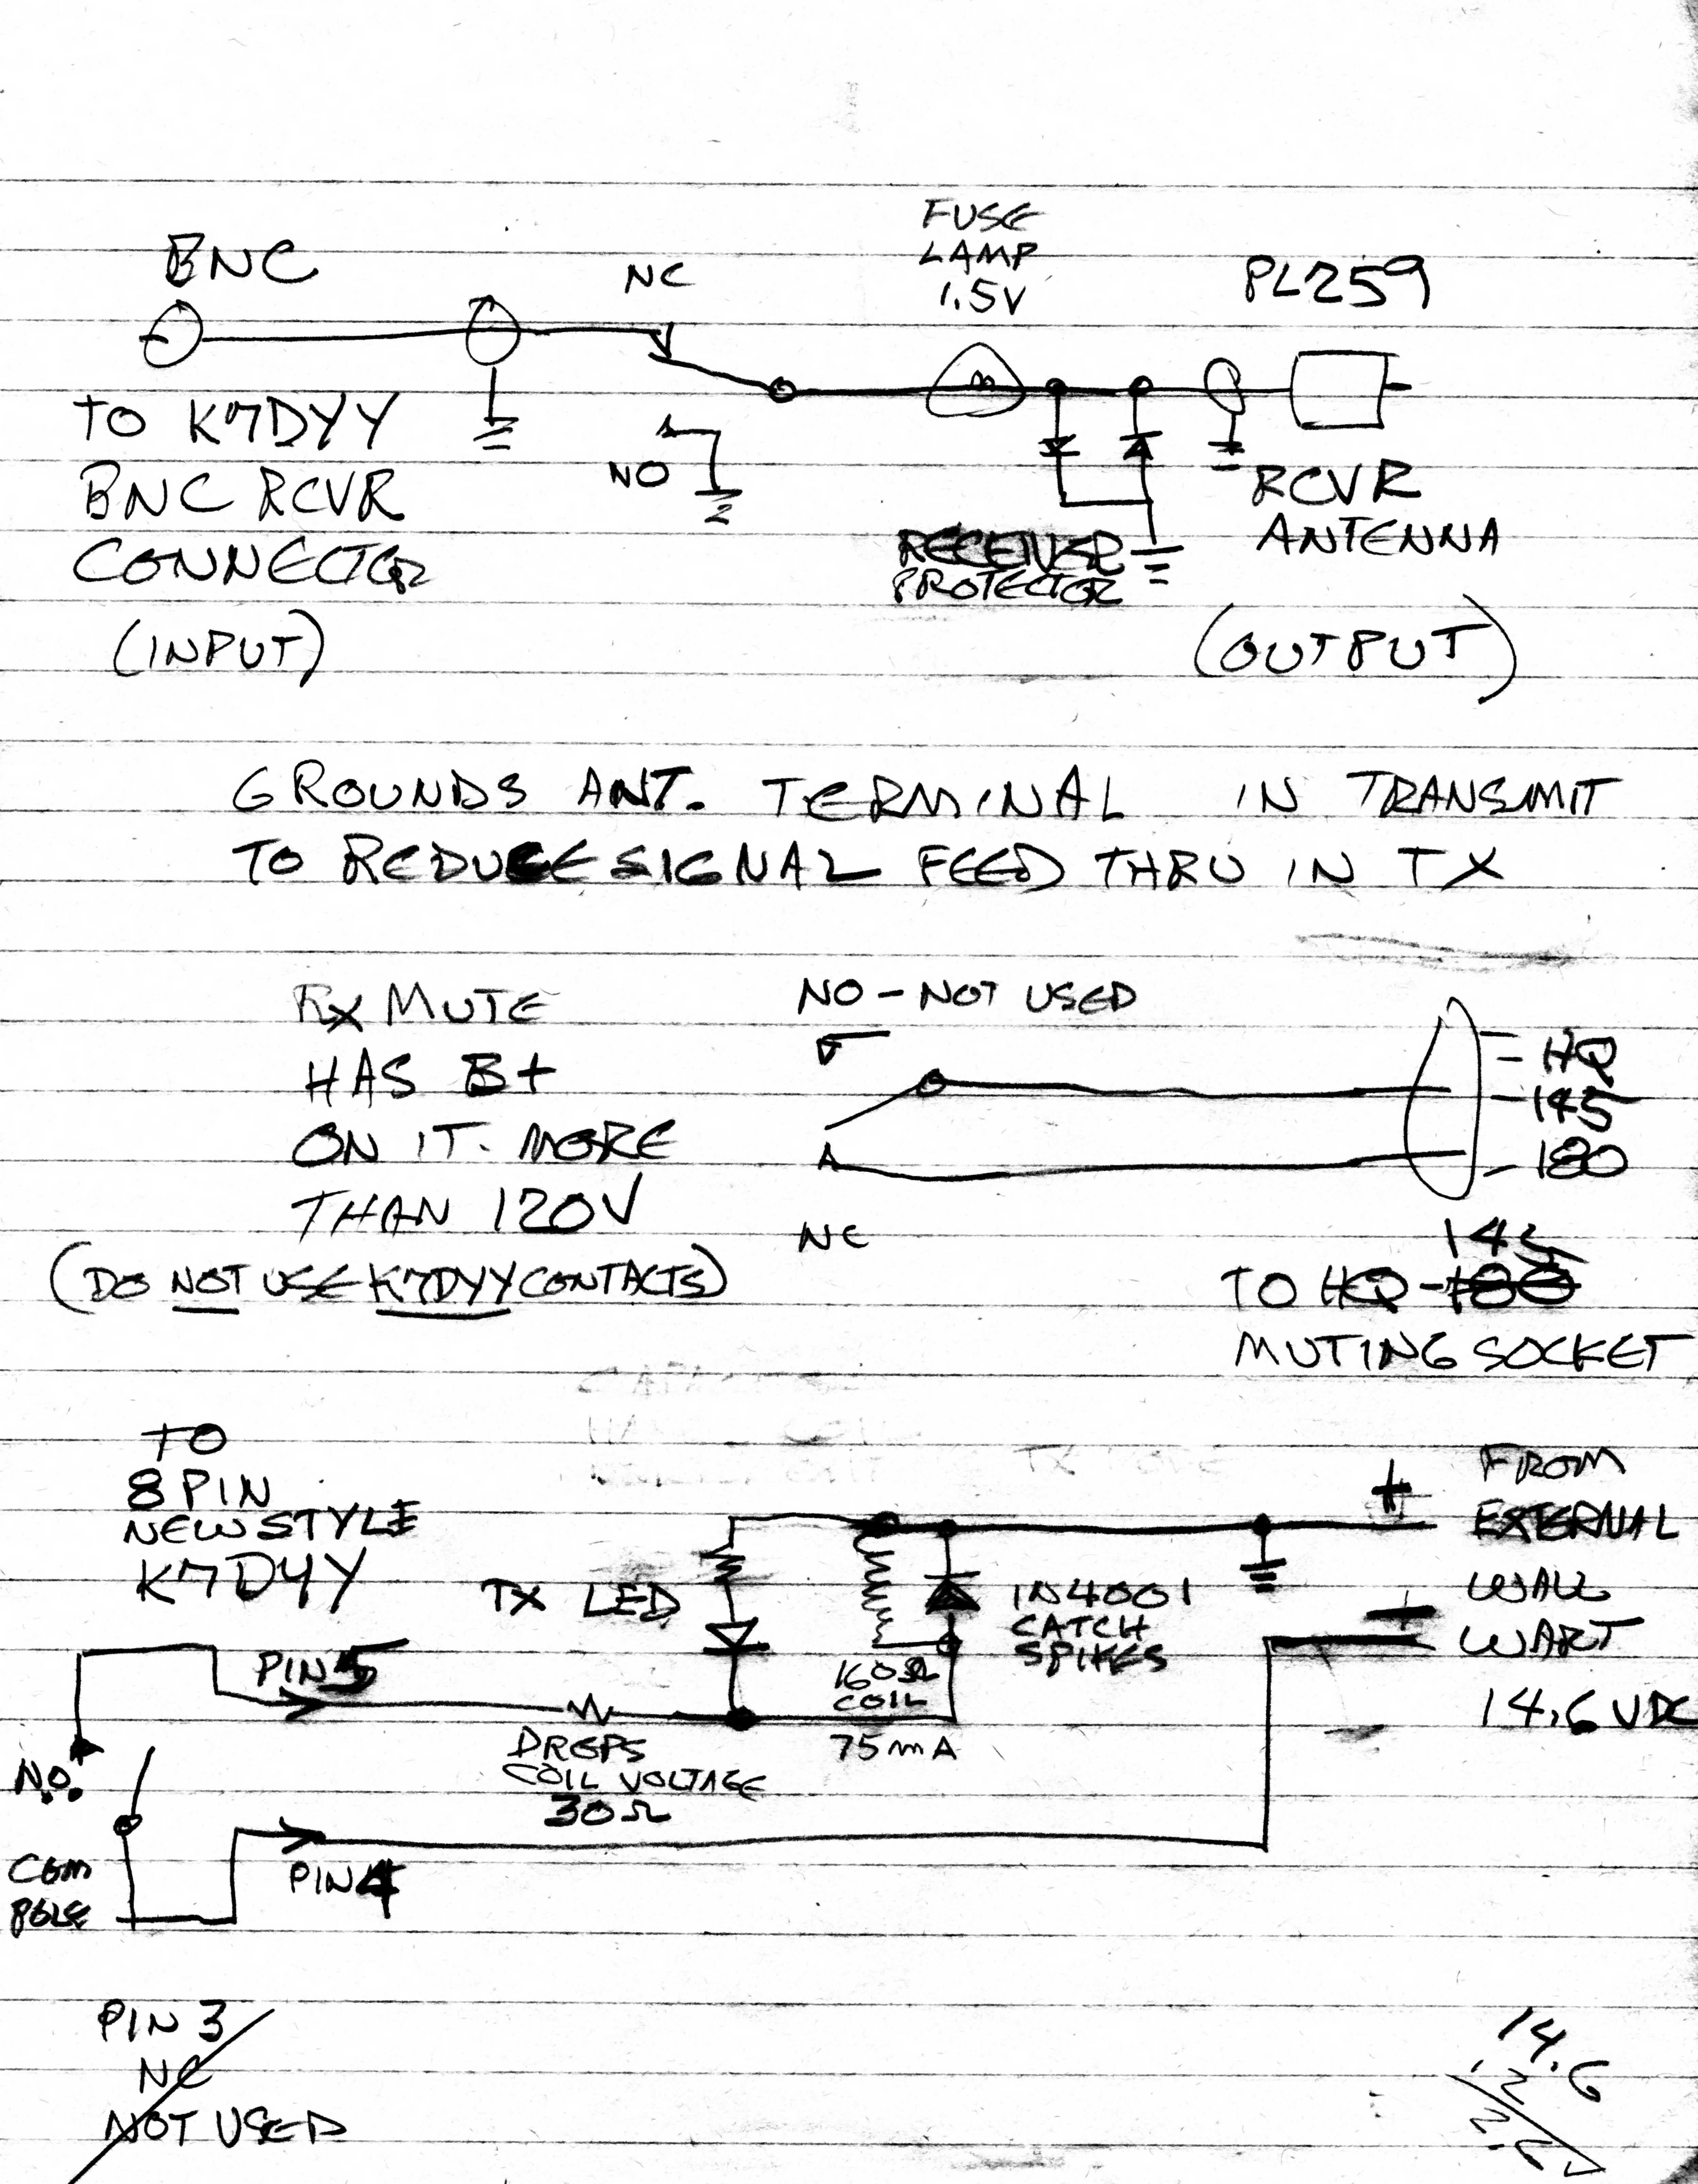 BNC
NC
FUSE
LAMP
1.5V
PL259
TO K7DYY
BNC RCVR
CONNECTOR
(INPUT)
NO
RECEIVER
PROTECTOR
RCVR
ANTENNA
(OUTPUT)
GROUNDS ANT. TERMINAL IN TRANSMIT
TO REDUCE SIGNAL FEED THRU IN TX
RX MUTE
HAS B+
ON IT. MORE
THAN 120V
(DO NOT USE K7DYY CONTACTS)
NO - NOT USED
NC
HQ
145
180
145
TO HQ-180
MUTING SOCKET
TO
8 PIN
NEW STYLE
K7DYY
TX LED
1N4001
CATCH
SPIKES
+
FROM
EXTERNAL
WALL
WART
14.6 VDC
PIN 5
160Ω
COIL
75mA
DROPS
COIL VOLTAGE
30Ω
N.O.
COM
POLE
PIN 4
PIN 3
NC
NOT USED
14.6